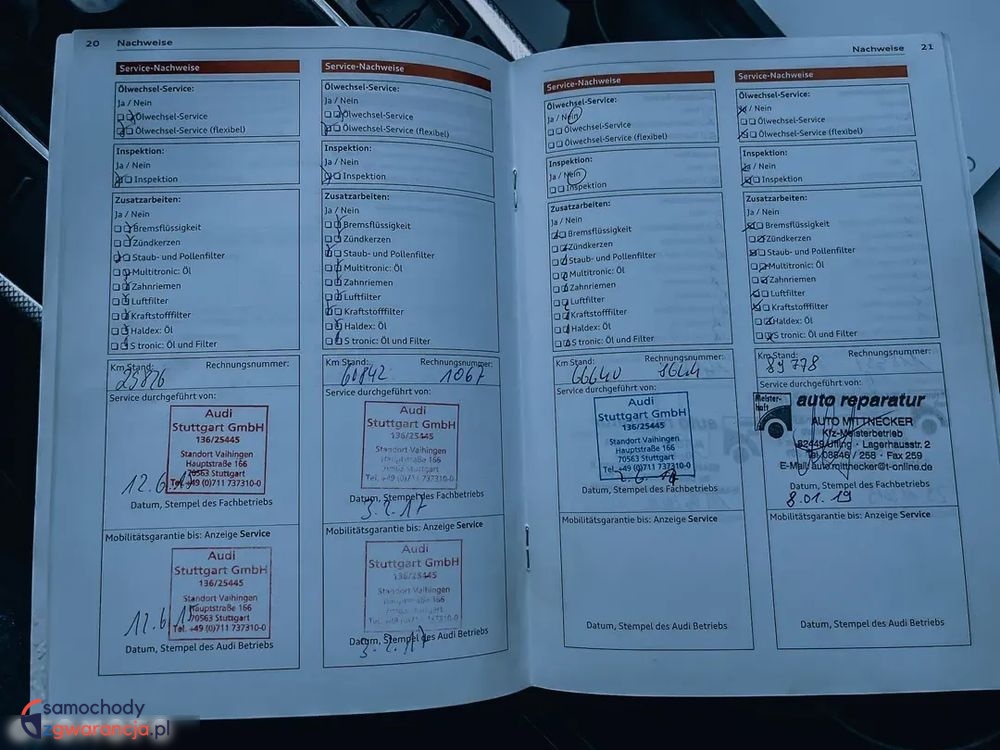 20 Nachweise
Service-Nachweise
Ölwechsel-Service:
Ja / Nein
Ölwechsel-Service
Ölwechsel-Service (flexibel)
Inspektion:
Ja / Nein
Inspektion
Zusatzarbeiten:
Ja / Nein
Bremsflüssigkeit
Zündkerzen
Staub- und Pollenfilter
Multitronic: Öl
Zahnriemen
Luftfilter
Kraftstofffilter
Haldex: Öl
S tronic: Öl und Filter
Km Stand:
Service durchgeführt von:
Audi
Stuttgart GmbH
136/25445
Standort Vaihingen
Hauptstraße 166
70563 Stuttgart
Tel. +49 (0)711 737310-0
Datum, Stempel des Fachbetriebs
Mobilitätsgarantie bis: Anzeige Service
Audi
Stuttgart GmbH
136/25445
Standort Vaihingen
Hauptstraße 166
70563 Stuttgart
Tel. +49 (0)711 737310-0
Datum, Stempel des Audi Betriebs
Service-Nachweise
Ölwechsel-Service:
Ja / Nein
Ölwechsel-Service
Ölwechsel-Service (flexibel)
Inspektion:
Ja / Nein
Inspektion
Zusatzarbeiten:
Ja / Nein
Bremsflüssigkeit
Zündkerzen
Staub- und Pollenfilter
Multitronic: Öl
Zahnriemen
Luftfilter
Kraftstofffilter
Haldex: Öl
S tronic: Öl und Filter
Km Stand: Rechnungsnummer:
60842 1067
Service durchgeführt von:
Audi
Stuttgart GmbH
136/25445
Standort Vaihingen
Hauptstraße 166
70563 Stuttgart
Tel. +49 (0)711 737310-0
Datum, Stempel des Fachbetriebs
3.2.17
Mobilitätsgarantie bis: Anzeige Service
Audi
Stuttgart GmbH
136/25445
Standort Vaihingen
Hauptstraße 166
70563 Stuttgart
Tel. +49 (0)711 737310-0
Datum, Stempel des Audi Betriebs
3.2.17
Nachweise 21
Service-Nachweise
Ölwechsel-Service:
Ja / Nein
Ölwechsel-Service
Ölwechsel-Service (flexibel)
Inspektion:
Ja / Nein
Inspektion
Zusatzarbeiten:
Ja / Nein
Bremsflüssigkeit
Zündkerzen
Staub- und Pollenfilter
Multitronic: Öl
Zahnriemen
Luftfilter
Kraftstofffilter
Haldex: Öl
S tronic: Öl und Filter
Km Stand: Rechnungsnummer:
66640
Service durchgeführt von:
Audi
Stuttgart GmbH
136/25445
Standort Vaihingen
Hauptstraße 166
70563 Stuttgart
Tel. +49 (0)711 737310-0
Datum, Stempel des Fachbetriebs
Mobilitätsgarantie bis: Anzeige Service
Datum, Stempel des Audi Betriebs
Service-Nachweise
Ölwechsel-Service:
Ja / Nein
Ölwechsel-Service
Ölwechsel-Service (flexibel)
Inspektion:
Ja / Nein
Inspektion
Zusatzarbeiten:
Ja / Nein
Bremsflüssigkeit
Zündkerzen
Staub- und Pollenfilter
Multitronic: Öl
Zahnriemen
Luftfilter
Kraftstofffilter
Haldex: Öl
S tronic: Öl und Filter
Km Stand: Rechnungsnummer:
89778
Service durchgeführt von:
Meister-
haft
auto reparatur
AUTO MITTNECKER
Kfz-Meisterbetrieb
82449 Uffing · Lagerhausstr. 2
Tel. 08846 / 258 · Fax 259
E-Mail: auto.mittnecker@t-online.de
Datum, Stempel des Fachbetriebs
8.01.19
Mobilitätsgarantie bis: Anzeige Service
Datum, Stempel des Audi Betriebs
samochody
zgwarancja.pl